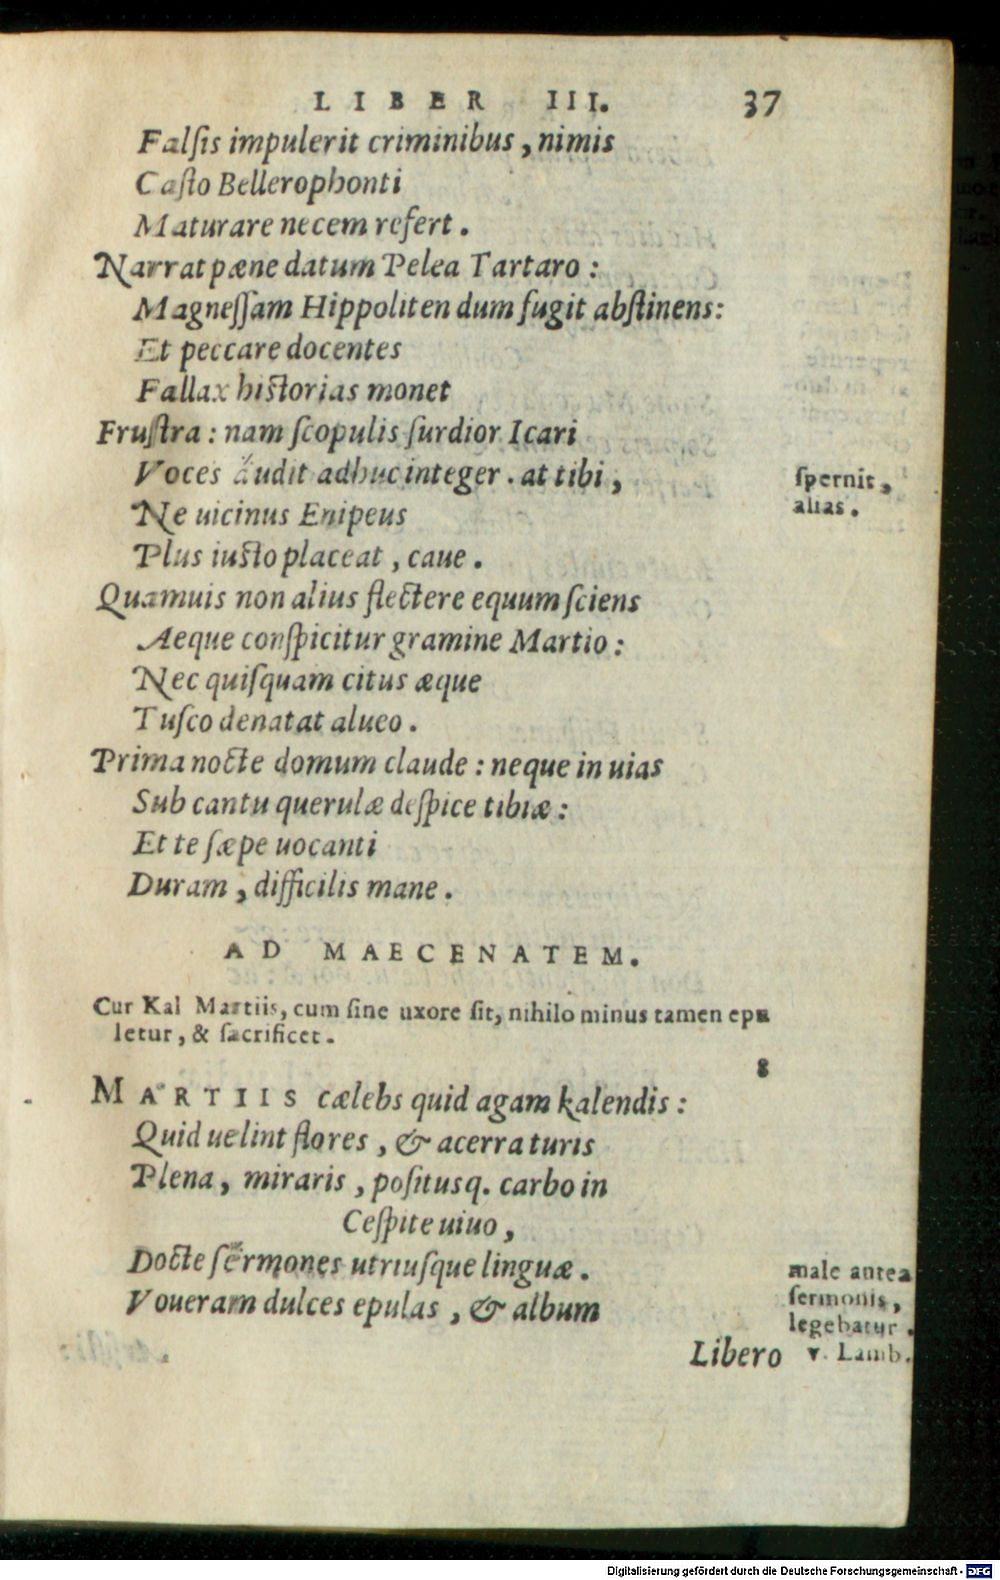 LIBER III. 37
Falſis impulerit criminibus, nimis
Caſto Bellerophonti
Maturare necem refert.
Narrat pæne datum Pelea Tartaro:
Magneſſam Hippoliten dum fugit abſtinens:
Et peccare docentes
Fallax historias monet
Fruſtra: nam ſcopulis ſurdior Icari
Voces audit adhuc integer. at tibi,
spernit,
alias.
Ne uicinus Enipeus
Plus iusto placeat, caue.
Quamuis non alius flectere equum ſciens
Aeque conſpicitur gramine Martio:
Nec quiſquam citus æque
Tuſco denatat alueo.
Prima nocte domum claude: neque in uias
Sub cantu querulæ deſpice tibiæ:
Et te ſæpe uocanti
Duram, difficilis mane.
AD MAECENATEM.
Cur Kal Martiis, cum ſine uxore ſit, nihilo minus tamen epu
letur, & ſacrificet.
8
MARTIIS cælebs quid agam kalendis:
Quid uelint flores, & acerra turis
Plena, miraris, poſitusq. carbo in
Ceſpite uiuo,
Docte ſermones utriuſque linguæ.
Voueram dulces epulas, & album
male antea
ſermonis,
legebatur.
v. Lamb.
Libero
Digitalisierung gefördert durch die Deutsche Forschungsgemeinschaft - DFG